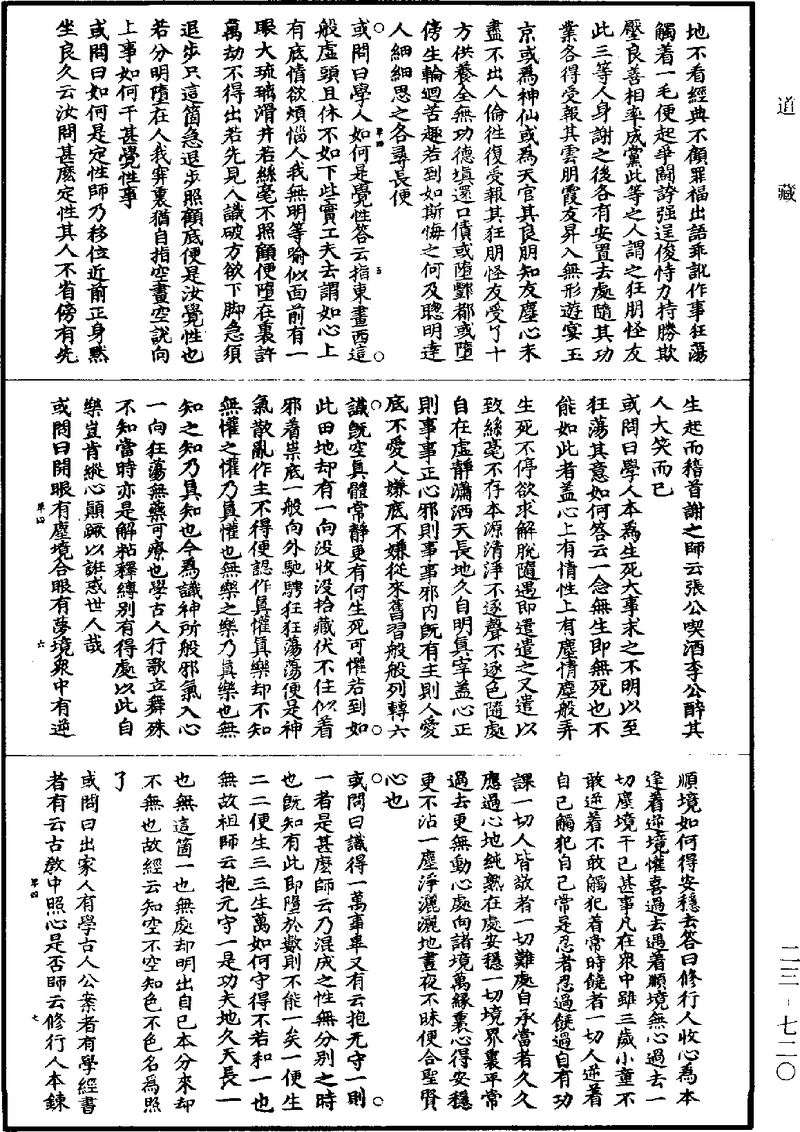 道藏
地不看經典不顧罪福出語乖訛作事狂蕩
觸着一毛便起爭鬪誇强逞俊恃力持勝欺
壓良善相率成黨此等之人謂之狂朋怪友
此三等人身謝之後各有安置去處隨其功
業各得受報其雲朋霞友昇入無形遊宴玉
京或為神仙或為天官其良朋知友塵心未
盡不出人倫徃復受報其狂朋怪友受了十
方供養全無功德填還口債或墮酆都或墮
傍生輪迴苦趣若到如斯悔之何及聰明達
人細細思之各尋長便
或問曰學人如何是覺性答云指東畫西這
般虛頭且休不如下些實工夫去謂如心上
有底情欲煩惱人我無明等喻似面前有一
眼大琉璃滑井若絲毫不照顧便墮在裏許
萬劫不得出若先見入識破方欲下脚急須
退步只這箇急退步照顧底便是汝覺性也
若分明墮在人我穽裏猶自指空畫空說向
上事如何干甚覺性事
或問曰如何是定性師乃移位近前正身默
坐良久云汝問甚麽定性其人不省傍有先
生起而稽首謝之師云張公喫酒李公醉其
人大笑而已
或問曰學人本為生死大事求之不明以至
狂蕩其意如何答云一念無生即無死也不
能如此者盖心上有情性上有塵情塵般弄
生死不停欲求解脫隨遇即遣遣之又遣以
致絲毫不存本源清淨不逐聲不逐色隨處
自在虛靜瀟洒天長地久自明真宰盖心正
則事事正心邪則事事邪内既有主則人愛
底不愛人嫌底不嫌從來舊習般般列轉六
識既空真體常靜更有何生死可懼若到如
此田地却有一向没收没拾藏伏不住似着
邪着祟底一般向外馳騁狂狂蕩蕩便是神
氣散亂作主不得便認作真懽真樂却不知
無懽之懽乃真懽也無樂之樂乃真樂也無
知之知乃真知也今為識神所般邪氣入心
一向狂蕩無藥可療也學古人行歌立舞殊
不知當時亦是解粘釋縛别有得處以此自
樂豈肯縱心顛蹶以誑惑世人哉
或問曰開眼有塵境合眼有夢境衆中有逆
順境如何得安穩去答曰修行人收心為本
逢着逆境懽喜過去遇着順境無心過去一
切塵境干己甚事凡在衆中雖三歲小童不
敢逆着不敢觸犯着常時饒者一切人逆着
自己觸犯自己常是忍者忍過饒過自有功
課一切人皆敬者一切難處自承當者久久
應過心地純熟在處安穩一切境界裏平常
過去更無動心處向諸境萬緣裏心得安穩
更不沾一塵淨灑灑地晝夜不昧便合聖賢
心也
或問曰識得一萬事畢又有云抱元守一則
一者是甚麽師云乃混成之性無分别之時
也既知有此即墮於數則不能一矣一便生
二二便生三三生萬如何守得不若和一也
無故祖師云抱元守一是功夫地久天長一
也無這箇一也無處却明出自己本分來却
不無也故經云知空不空知色不色名為照
了
或問曰出家人有學古人公案者有學經書
者有云古教中照心是否師云修行人本鍊
二三-七二〇